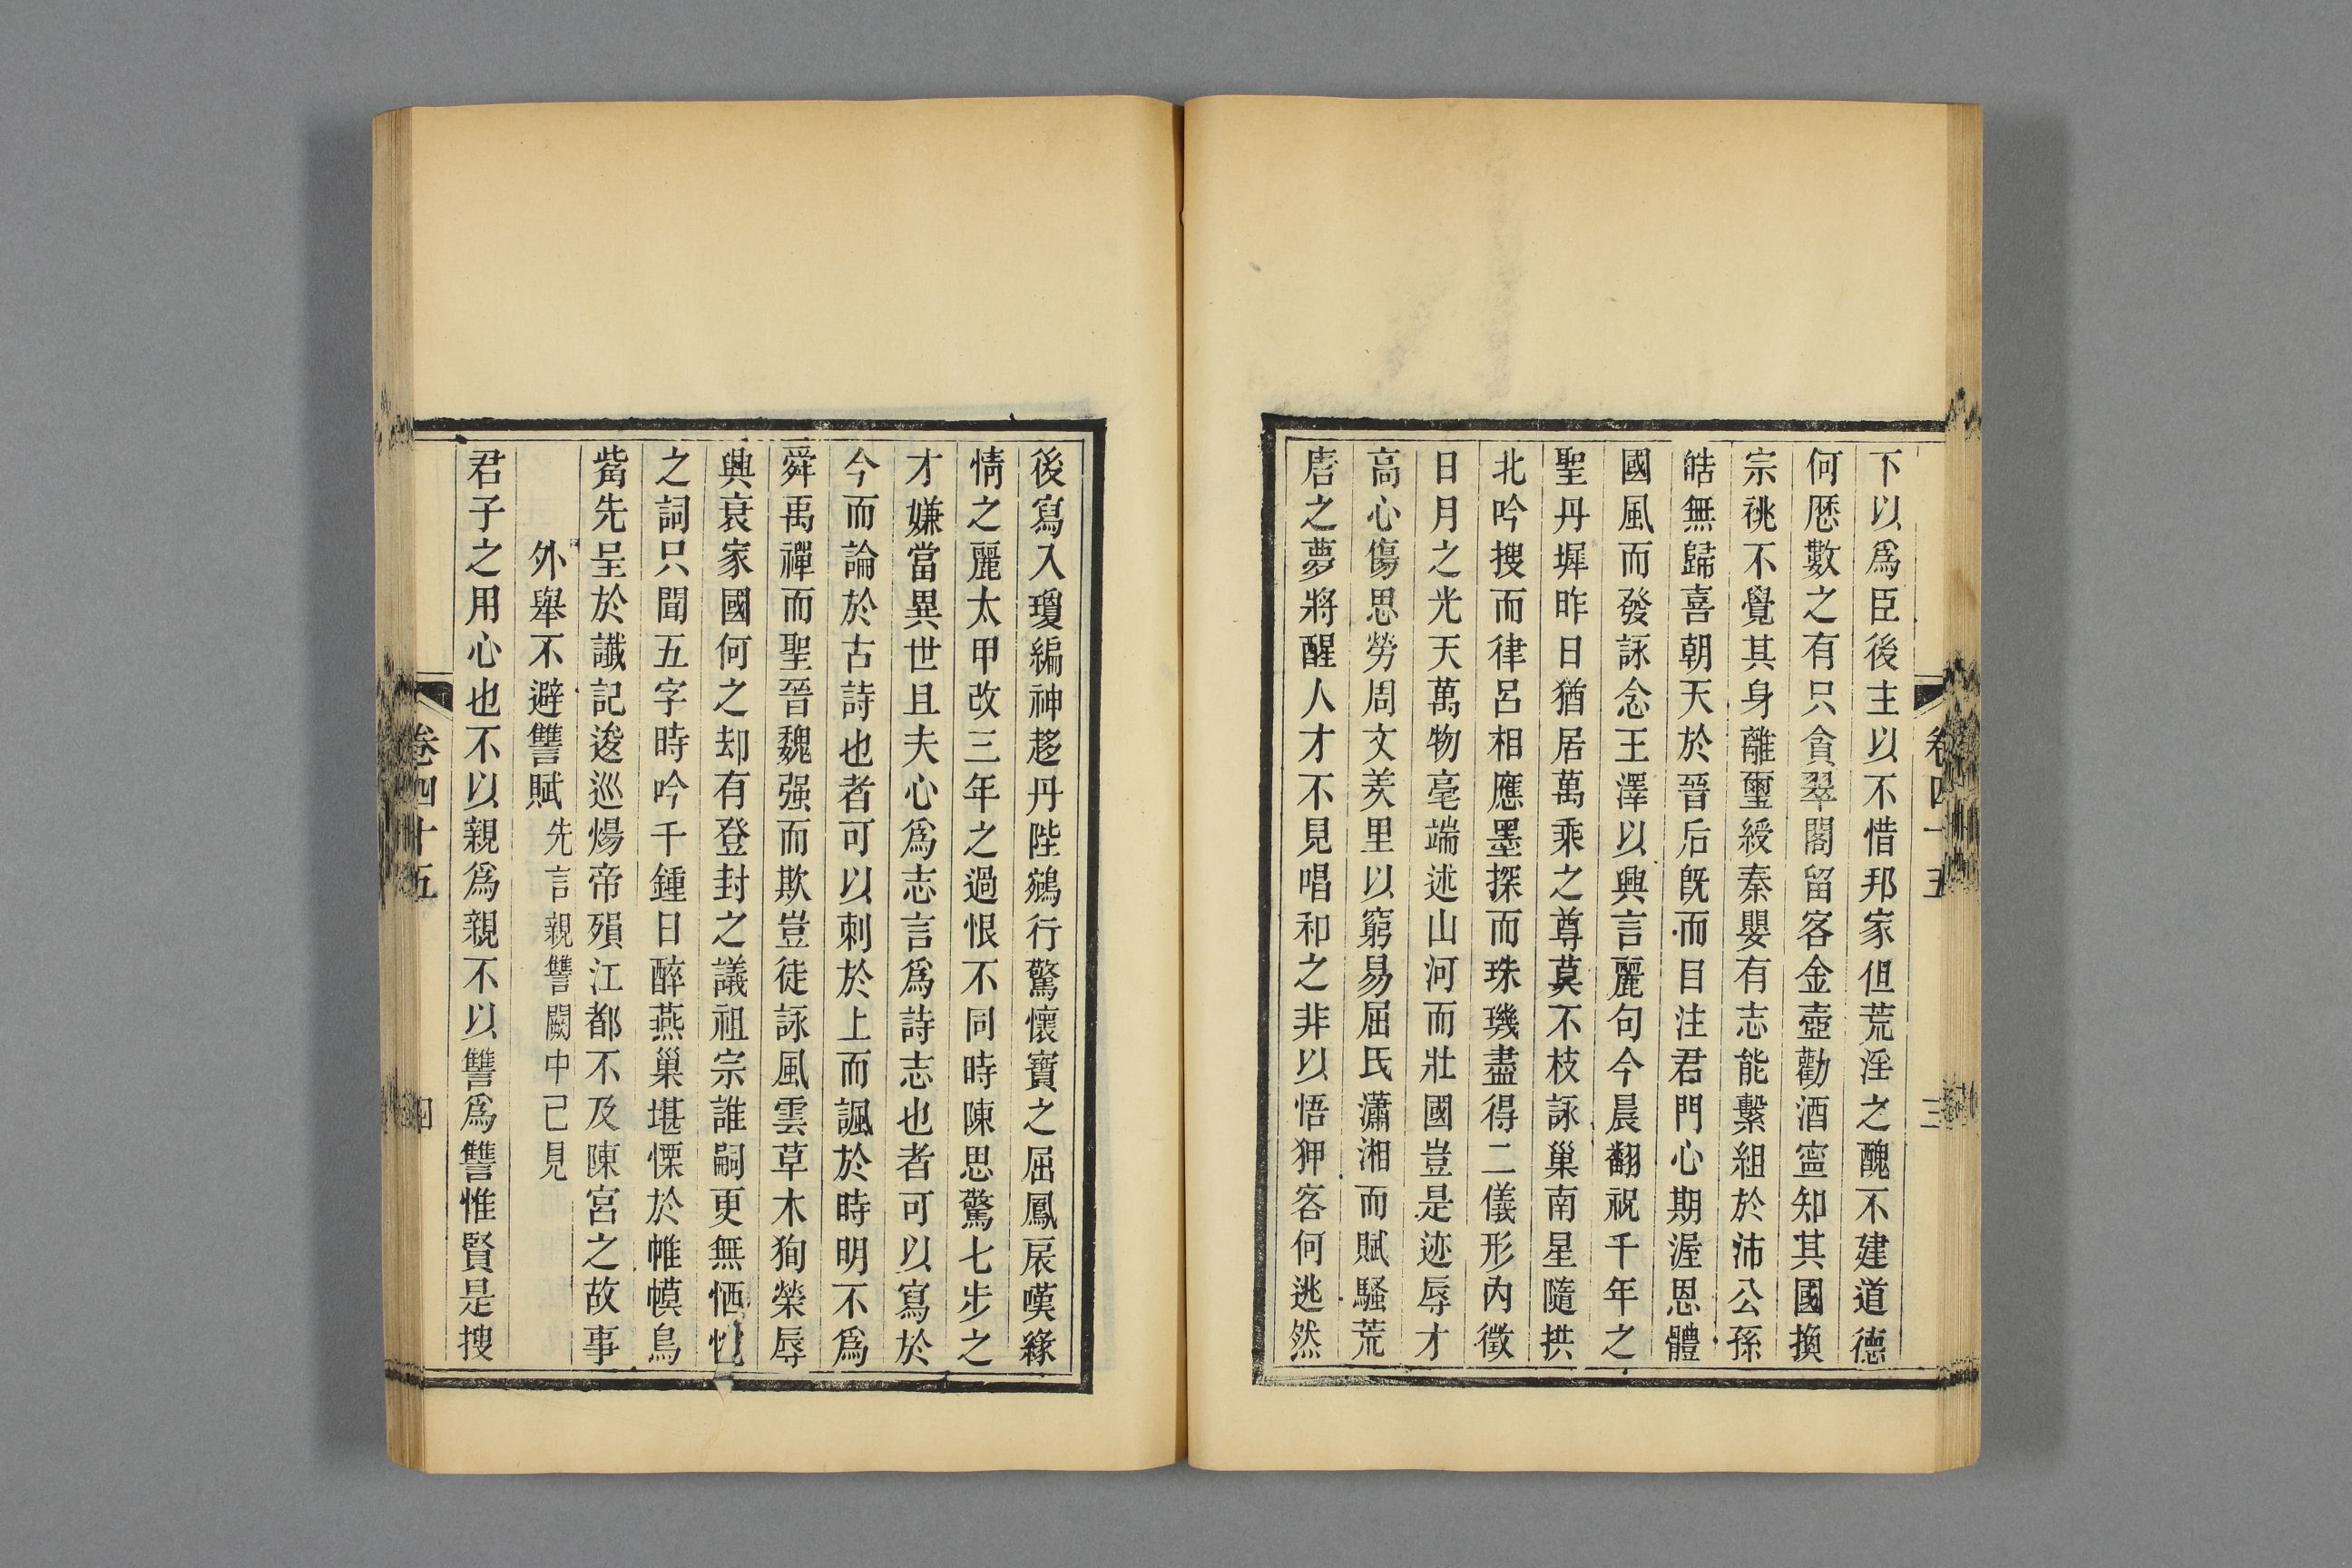 下以爲臣後主以不惜邦家但荒淫之醜不建道德
何厯數之有只貪翠閣留客金壺勸酒寧知其國換
宗祧不覺其身離璽綬秦嬰有志能繫組於沛公孫
皓無歸喜朝天於晉后旣而目注君門心期渥恩體
國風而發詠念王澤以興言麗句今晨翻祝千年之
聖丹墀昨日猶居萬乘之尊莫不枝詠巢南星隨拱
北吟搜而律呂相應墨探而珠璣盡得二儀形內徵
日月之光天萬物毫端述山河而壯國豈是迹辱才
高心傷思勞周文羑里以窮易屈氏瀟湘而賦騷荒
唐之夢將醒人才不見唱和之非以悟狎客何逃然
卷四十五
三
後寫入瓊編神趍丹陛鵷行驚懷寶之屈鳳扆嘆緣
情之麗太甲改三年之過恨不同時陳思驚七步之
才嫌當異世且夫心爲志言爲詩志也者可以寫於
今而論於古詩也者可以刺於上而諷於時明不爲
舜禹禪而聖晉魏强而欺豈徒詠風雲草木狥榮辱
興衰家國何之却有登封之議祖宗誰嗣更無恓
之詞只聞五字時吟千鍾日醉燕巢堪慄於帷幙鳥
觜先呈於讖記逡巡煬帝殞江都不及陳宮之故事
外舉不避讐賦先言親讐闕中已見
君子之用心也不以親爲親不以讐爲讐惟賢是搜
卷四十五
四